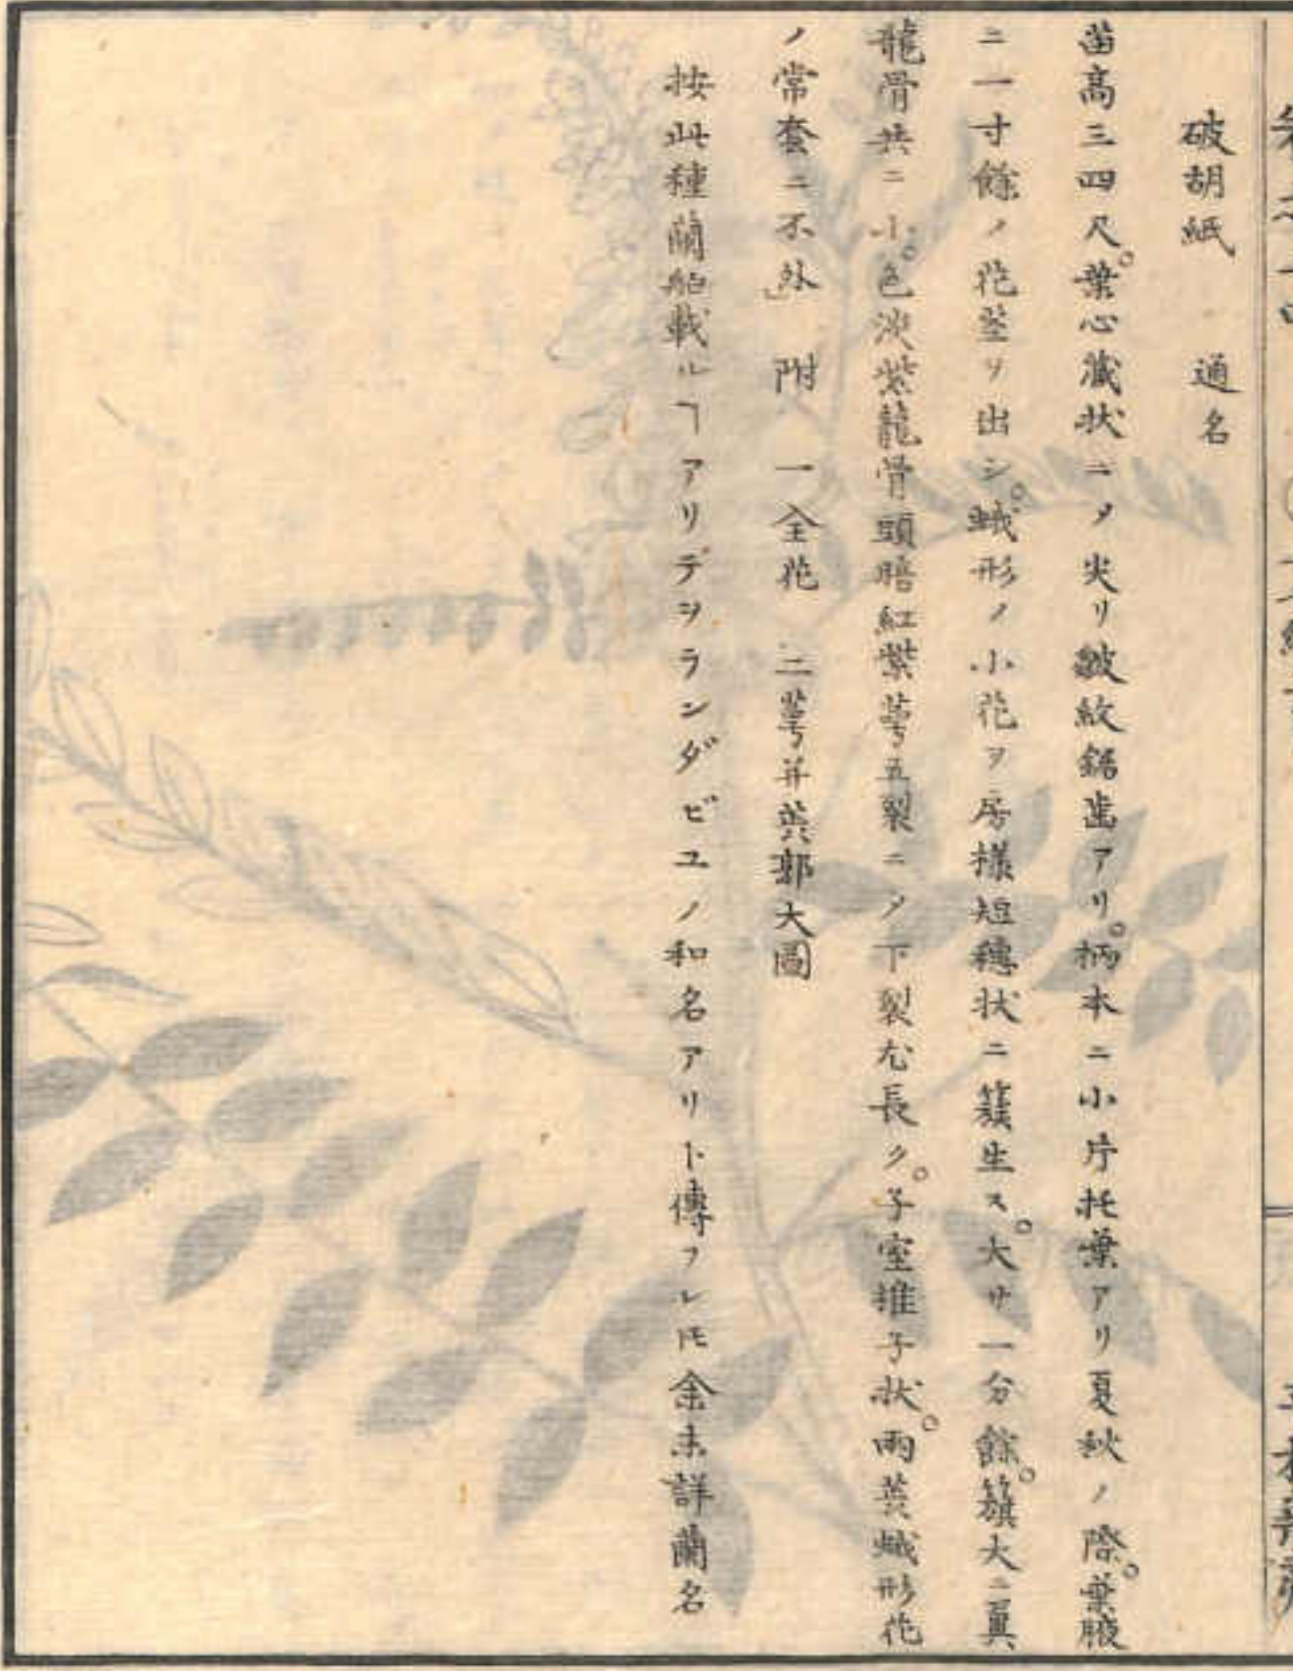 破胡紙 通名
苗高三四尺。葉心臓状ニノ尖リ皺紋鋸歯アリ。柄本ニ小片托葉アリ夏秋ノ際。葉腋
ニ一寸餘ノ花莖ヲ出シ。蛾形ノ小花ヲ房樣短穗状ニ簇生ス。大サ一分餘。籏大ニ翼
龍骨共ニ小。色淡紫龍骨頭暗紅紫萼五裂ニノ下裂尤長ク。子室推子状。兩蕊蛾形花
ノ常套ニ不外」 附 一全花 二萼并蕊郭大圖
按此種蘭舶載ルヿアリテヲランダビユノ和名アリト傳フレ𪜈余未詳蘭名